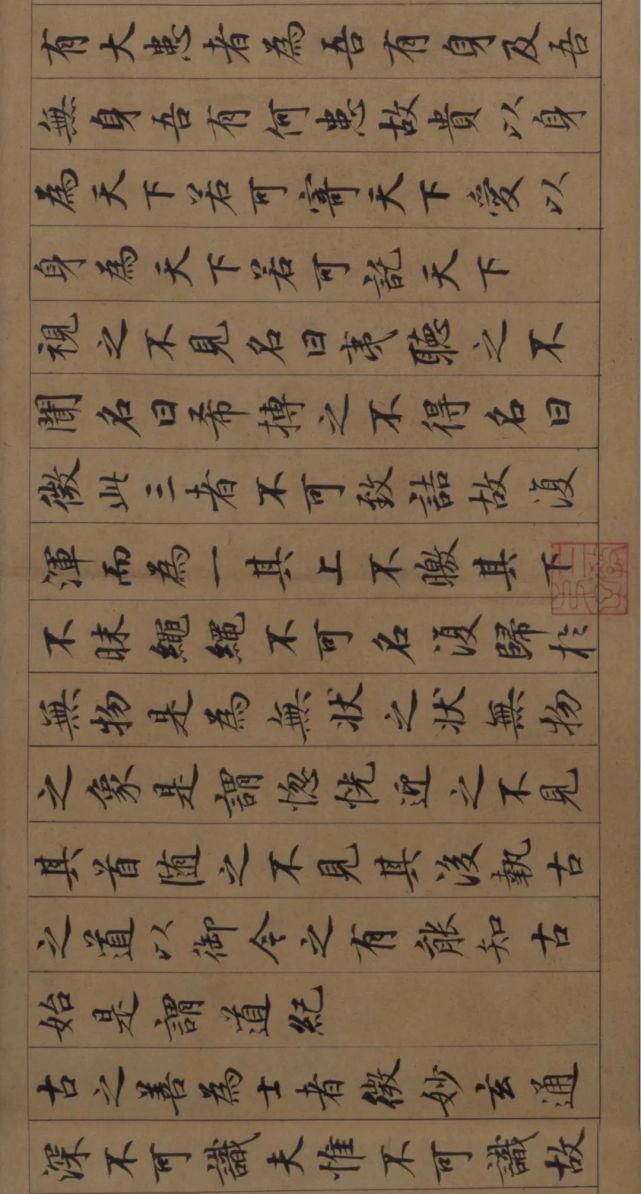 有大患者為吾有身及吾
無身吾有何患故貴以身
為天下若可寄天下愛以
身為天下若可託天下
視之不見名曰夷聽之不
聞名曰希搏之不得名曰
微此三者不可致詰故復
渾而為一其上不皦其下
不昧繩繩不可名復歸於
無物是為無狀之狀無物
之象是謂惚恍迎之不見
其首隨之不見其後執古
之道以御今之有能知古
始是謂道紀
古之善為士者微妙玄通
深不可識夫惟不可識故